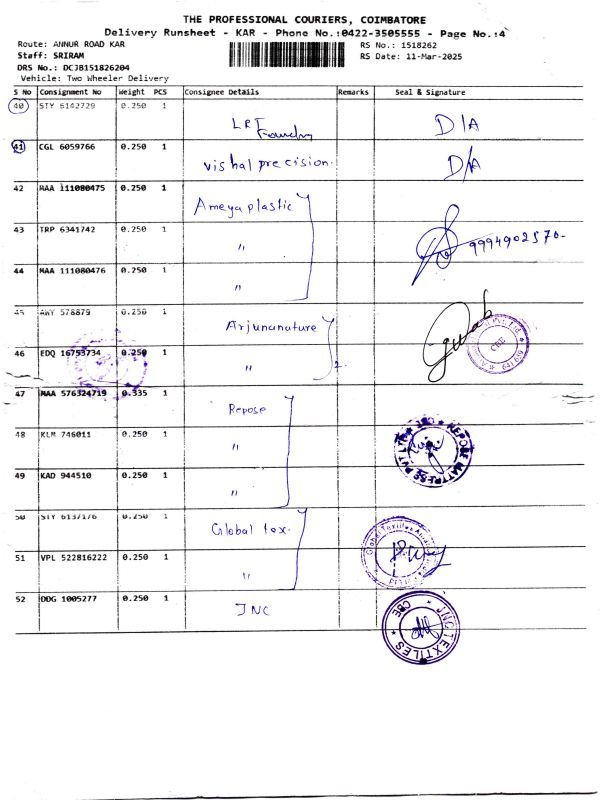 THE PROFESSIONAL COURIERS, COIMBATORE
Delivery Runsheet - KAR - Phone No.:0422-3505555 - Page No.:4
Route: ANNUR ROAD KAR
RS No.: 1518262
Staff: SRIRAM
RS Date: 11-Mar-2025
DRS No.: DCJB151826204
Vehicle: Two Wheeler Delivery
S No Consignment No Weight PCS Consignee Details Remarks Seal & Signature
40 STY 6142729 0.250 1 LRT Foundry D/A
41 CGL 6059766 0.250 1 vishal precision. D/A
42 MAA 111080475 0.250 1 Ameya plastic
43 TRP 6341742 0.250 1 " 9994902576-
44 MAA 111080476 0.250 1 "
45 AWY 578879 0.250 1 Arjunanature
46 EDQ 16753734 0.250 1 " 2.
47 MAA 576324719 0.335 1 Repose
48 KLM 746011 0.250 1 "
REPOSE MATTRESS PVT LTD
49 KAD 944510 0.250 1 "
50 STY 6137176 0.250 1 Global tex.
51 VPL 522816222 0.250 1 "
52 DDG 1005277 0.250 1 JNC
JNC TEXTILES * CBE *